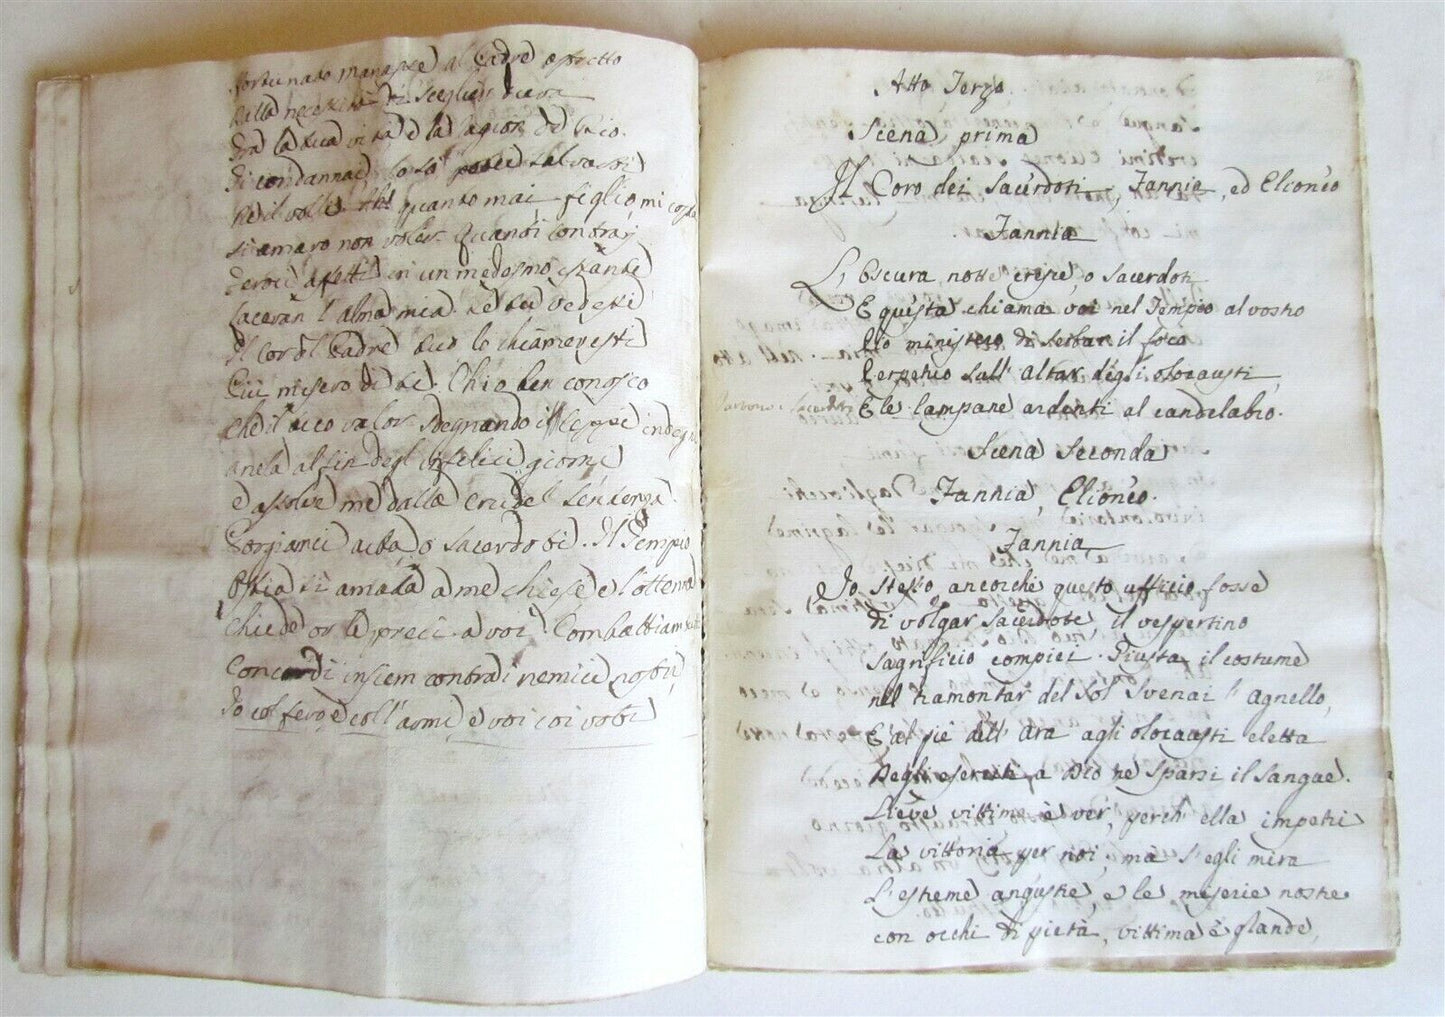 fortunato Manasse al Padre astretto
dalla necessità di sceglier
tra la tua vita e la cagion di Dio.
Ti condannai, lo so potei salvarti
né il volli. Ahi quanto mai figlio, mi costa
sì amaro non voler. Quanti contrarj
feroci affetti in un medesmo istante
laceran l'alma mia. Se tu vedessi
Il cor del Padre tuo lo chiameresti
Più misero di te. Ch'io ben conosco
che il tuo valor sdegnando il
anela al fin degl'infelici giorni
e assolve me dalla crudel sentenza.
al Sacerdoti. Il Tempio
Ostia sì amara a me chiese e l'ottenne
chiede or le preci a voi. Combattiam
Concordi insiem contra i nemici nostri
Io col ferro e coll'armi e voi coi voti
Atto Terzo
Scena prima
Il Coro dei Sacerdoti, Fannia, ed Elioneo
Fannia
L'Oscura notte cresce, o Sacerdoti
E questa chiama voi nel Tempio al vostro
Pio ministero di serbar il foco
Perpetuo sull'altar degli olocausti,
E le lampane ardenti al candelabro.
Scena Seconda
Fannia, Elioneo.
Fannia
Io stesso ancorchè questo ufficio fosse
di volgar Sacerdote il vespertino
sagrificio compiei. Giusta il costume
nel tramontar del Sol svenai l'agnello,
E al piè dell'ara agli olocausti eletta
Degli eserciti a Dio ne sparsi il sangue.
Lieve vittima è ver, perch'ella impetri
La vittoria per noi, ma s'egli mira
L'estreme angustie, e le miserie nostre
con occhi di pietà, vittima è grande,